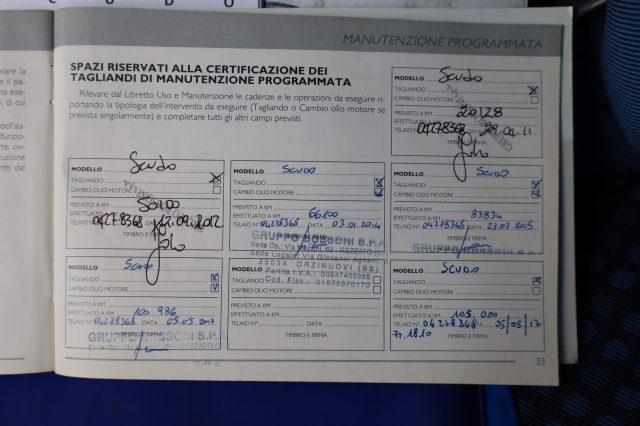 MANUTENZIONE PROGRAMMATA
SPAZI RISERVATI ALLA CERTIFICAZIONE DEI
TAGLIANDI DI MANUTENZIONE PROGRAMMATA
Rilevare dal Libretto Uso e Manutenzione le cadenze e le operazioni da eseguire ri-
portando la tipologia dell'intervento da eseguire (Tagliando o Cambio olio motore se
prevista singolarmente) e completare tutti gli altri campi previsti.
MODELLO Scudo
TAGLIANDO X
CAMBIO OLIO MOTORE
PREVISTO A KM
EFFETTUATO A KM 20128
TELAIO N° 04278368 29.04.11
MODELLO Scudo
TAGLIANDO X
CAMBIO OLIO MOTORE
PREVISTO A KM
EFFETTUATO A KM
TELAIO N° 04278368 .09.2012
MODELLO SCUDO
TAGLIANDO X
CAMBIO OLIO MOTORE X
PREVISTO A KM
EFFETTUATO A KM 66100
TELAIO N° 04278368 DATA 03.01.2014
GRUPPO BOSSONI S.P.A.
25034 ORZINUOVI (BS)
Partita I.V.A.: 00647400985
Cod. Fisc.: 01878370170
MODELLO SCUDO
TAGLIANDO X
CAMBIO OLIO MOTORE X
PREVISTO A KM
EFFETTUATO A KM 83834
TELAIO N° 04278368 DATA 27.07.2015
TIMBRO E FIRMA
MODELLO SCUDO
TAGLIANDO X
CAMBIO OLIO MOTORE X
PREVISTO A KM
EFFETTUATO A KM 100.986
TELAIO N° 04278368 DATA 05.05.2017
TIMBRO E FIRMA
GRUPPO BOSSONI S.P.A.
MODELLO
TAGLIANDO
CAMBIO OLIO MOTORE
PREVISTO A KM
EFFETTUATO A KM
TELAIO N° DATA
TIMBRO E FIRMA
MODELLO SCUDO
TAGLIANDO X
CAMBIO OLIO MOTORE
PREVISTO A KM
EFFETTUATO A KM 105.000
TELAIO N° 04278368 05/05/17
TIMBRO E FIRMA
33